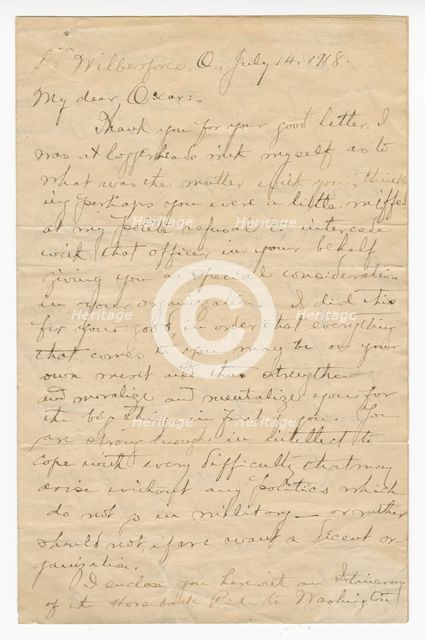 Wilberforce, O., July 14, 1918.
My dear Oscar:-
Thank you for your good letter. I
was at loggerheads with myself as to
what was the matter with you, think-
ing perhaps you were a little miffed
at my polite refusal to intercede
with that officer in your behalf
giving you a special consideration
in your organization. I did this
for your good in order that everything
that comes to you may be on your
own merit and thus strengthen
and moralize and mentalize you for
the big things in front of you. You
are strong enough in intellect to
cope with every difficulty that may
arise without any politics which
do not go in military — or rather
should not, if we want a decent or-
ganization.
I enclose you herewith an Itinerary
of the Horseback Ride to Washington
Heritage
Heritage
Heritage
Heritage
Heritage
Heritage
Heritage
Heritage